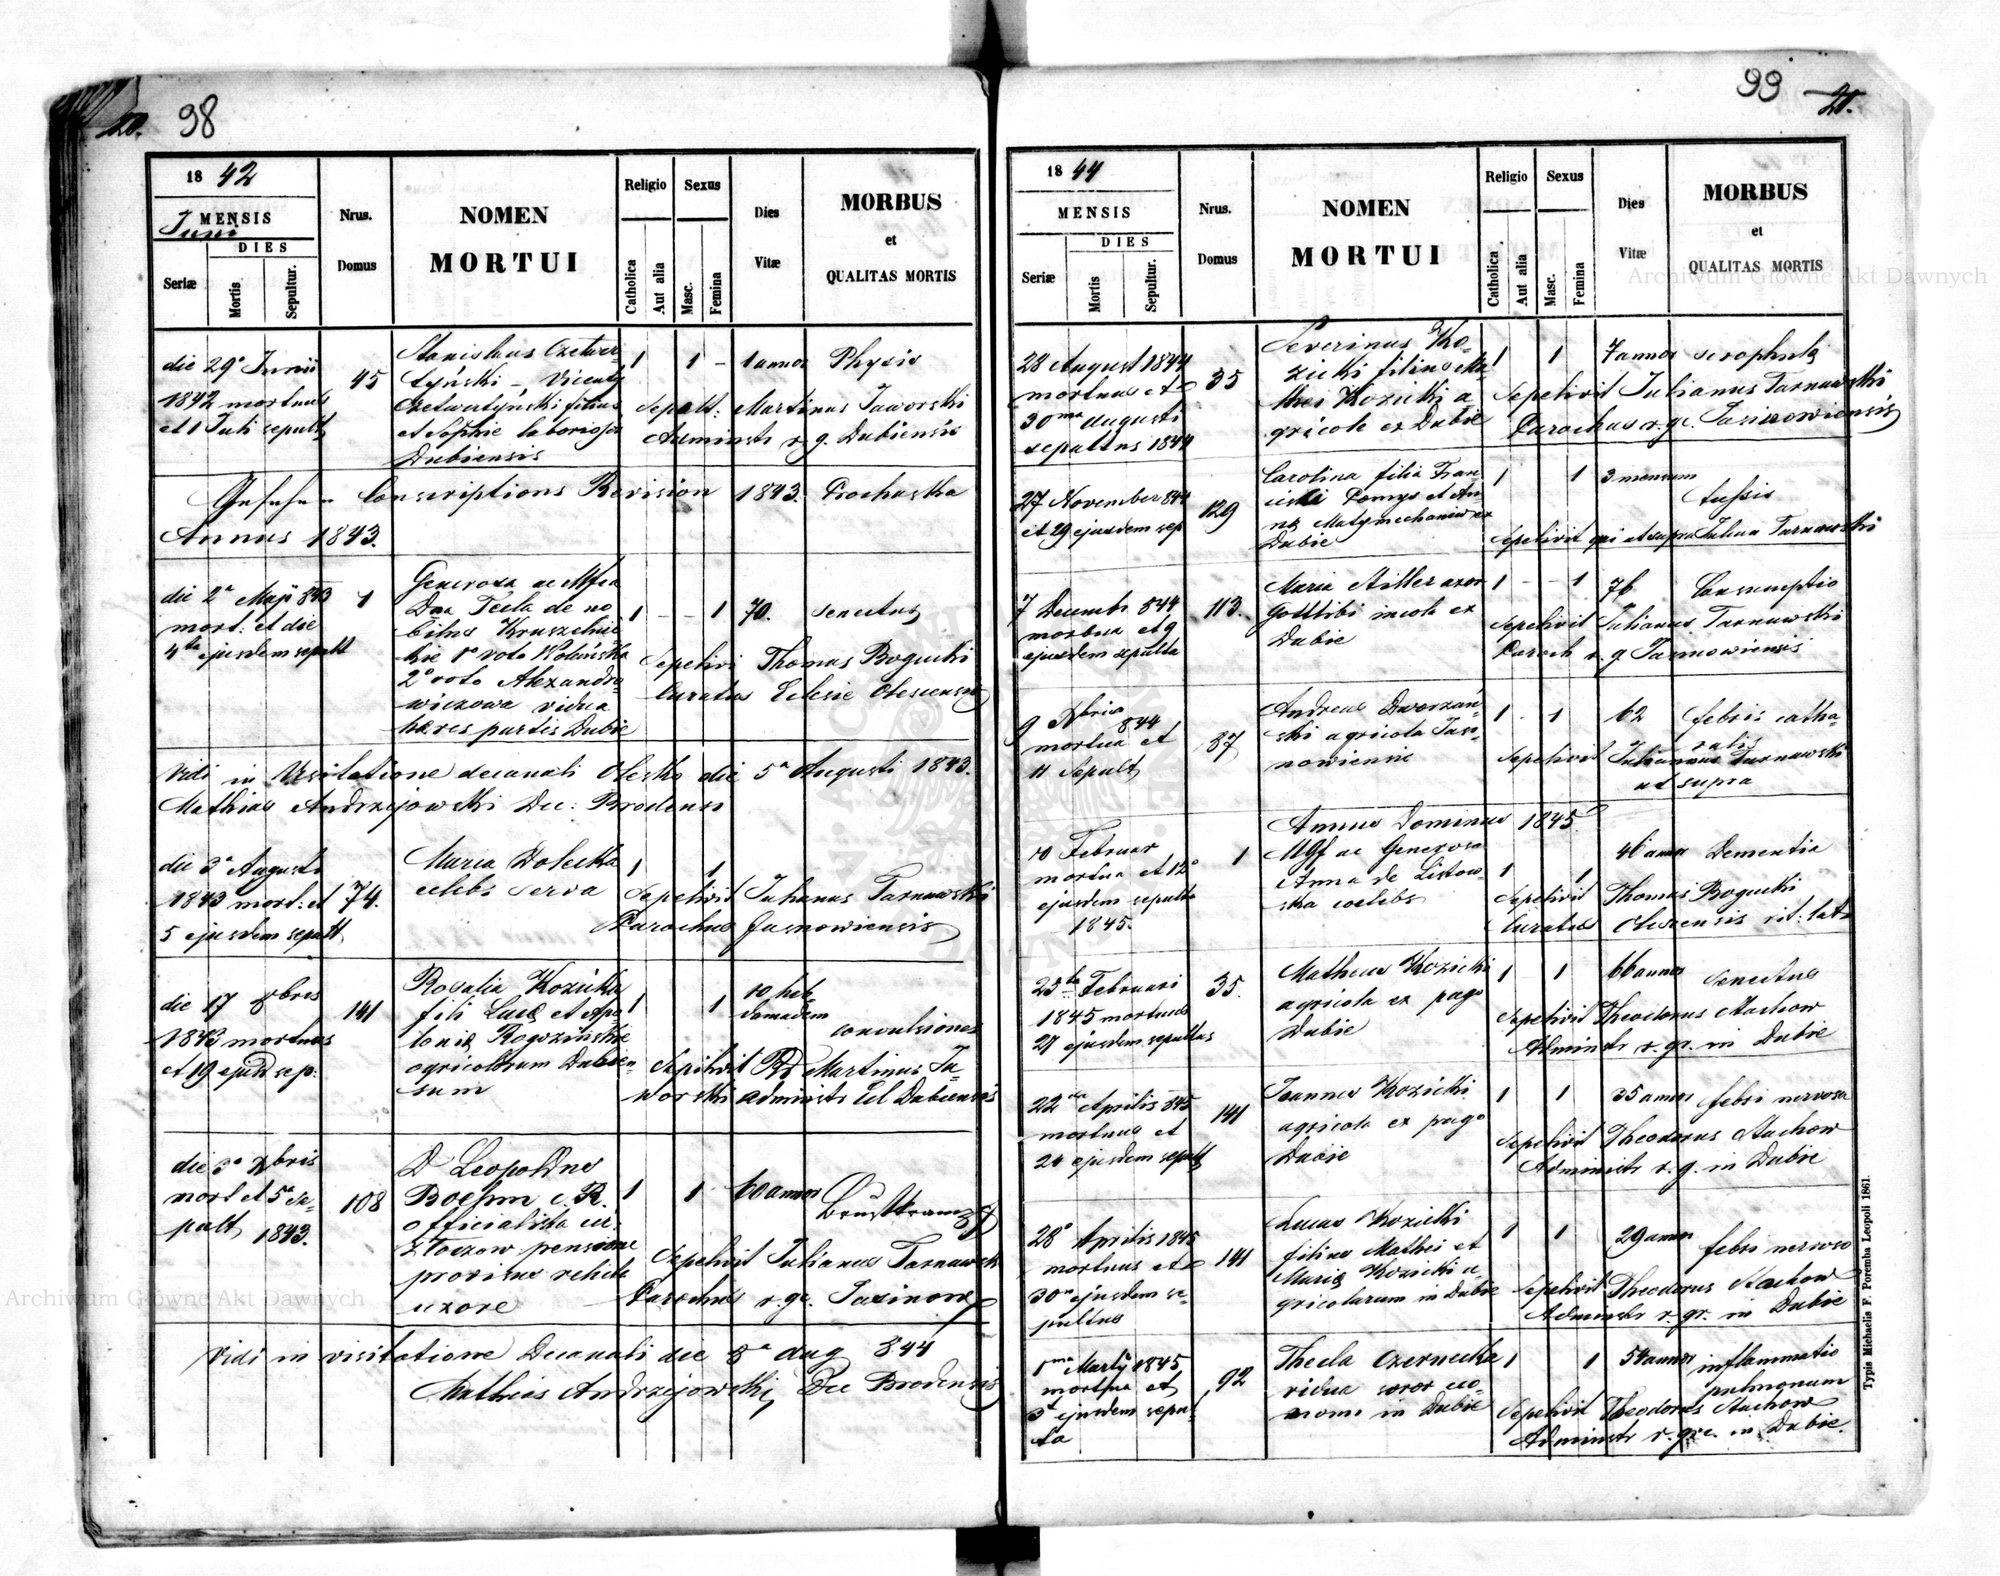 98
1842
MENSIS
Juni
DIES
Seriæ
Mortis
Sepultur.
Nrus.
Domus
NOMEN
MORTUI
Religio
Catholica
Aut alia
Sexus
Masc.
Femina
Dies
Vitæ
MORBUS
et
QUALITAS MORTIS
die 29a Junii
1842 mortuus
et 1 Juli sepult
45
Stanislaus Czetwer-
tyński
Czetwertyński filius
et Sophie laboriosa
Dubiensis
1
1 -
1 annor
Physis
Sepult: Martinus Jaworski
Adminstr r. g. Dubiensis
Conscriptions Revision 1843. Prochaska
Annus 1843.
die 2a Maji 843
mort: et die
4ta ejusdem sepult
1
Generosa ac Mfca
Dna Tecla de no
bilus Kruszelnic
kie 1o voto Wolańska
2o voto Alexandro-
wiczowa vidua
heres partis Dubie
1 - - 1
70.
senectus
Sepelivi Thomas Bogucki
Curatus Eclesie Olescensis
Vidi in Visitatione decanali Olesko die 5a Augusti 1843.
Mathias Andrzejowski Dec: Brodensis
die 3a Augusti
1843 mort: et
5 ejusdem sepult
74.
Maria Dolecka
celebs serva
1
1
Sepelivit Julianus Tarnawski
Parochus Jasnowiensis
die 17 8bris
1843 mortuus
et 19 ejusd sep:
141
Rosalia Kozicka
fili Luce et Apo
lonie Rogozinskie
agricolarum Dubien-
sium
1
1
10 heb-
domadem
convulsiones
Sepelivit Rd Martinus Ja-
worski adminstr Ecl Dubiensis
die 3a Xbris
mort et 5a se-
pult 1843.
108
D Leopoldus
Boehm c. R.
officialista
Złoczow pensione
provisus relicta
uxore
1
1
60 annor
Sepelivit Julianus Tarnawsk
Parochus r. gc. Jasinow
Vidi in visitatione Decanali die 8a Aug 844
Mathias Andrzejowski Dec Brodensis
99
21.
1844
MENSIS
DIES
Seriæ
Mortis
Sepultur.
Nrus.
Domus
NOMEN
MORTUI
Religio
Catholica
Aut alia
Sexus
Masc.
Femina
Dies
Vitæ
MORBUS
et
QUALITAS MORTIS
28 August 1844
mortuus et
30ma augusti
sepultus 1844
35
Severinus Ko-
zicki filius Ma-
thei Kozicki a
gricole ex Dubie
1
1
7 annor
scrophule
Sepelivit Julianus Tarnawski
Parochus r. gc. Jasionowiensis
27 November 844
et 29 ejusdem sep
129
Carolina filia Fran-
ciski Pomys et An-
ne
Dubie
1
1
3 mensum
tussis
Sepelivit qui et supra Julian Tarnawski
7 Decembr 844
mortua et 9
ejusdem sepulta
113.
Maria Hiller uxor
Gottlibi incole ex
Dubie
1 - - 1
76
Consumptio
Sepelivit Julianus Tarnawski
Paroch r. g. Jasinowiensis
9 Xbris
844
mortua et
11 Sepult
87
Andreas Dworzań-
ski agricola Jasi-
nowiensis
1 - 1
62
febris catha-
ralis
Sepelivit Julianus Tarnawski
ut supra
Annus Dominus 1845
10 Februar
mortua et 12o
ejusdem sepulta
1845.
1
MGf ac Generosa
Anna de Listow-
ska coelebs
1
1
46 annor
Dementia
Sepelivit Thomas Bogucki
Curatus Olescensis rit: lat:
25ta Februari
1845 mortuus
27 ejusdem sepultus
35.
Matheus Kozicki
agricola ex pago
Dubie
1
1
66 annor
senectus
Sepelivit Theodorus Stachow
Adminstr r. gr. in Dubie
22da Aprilis 845
mortuus et
24 ejusdem sepult
141
Joannes Kozicki
agricola ex pago
Dubie
1
1
35 annor
febri nervosa
Sepelivit Theodorus Stachow
Administr r. g. in Dubie
28a Aprilis 1845
mortuus et
30a ejusdem se-
pultus
141
Lucas Kozicki
filius Mathei et
Marie Kozicki a-
gricolarum in Dubie
1
1
29 annor
febri nervosa
Sepelivit Theodorus Stachow
Adminstr r. gr. in Dubie
1ma Martÿ 1845
mortua et
3a ejusdem sepul
ta
92
Thecla Czernecka
vidua soror oeco-
nomi in Dubie
1
1
54 annor
inflammatio
pulmonum
Sepelivit Theodorus Stachow
Adminstr r. grc. in Dubie.
Typis Michaelis F. Poremba Leopoli 1861.
Archiwum Główne Akt Dawnych
Archiwum Główne Akt Dawnych